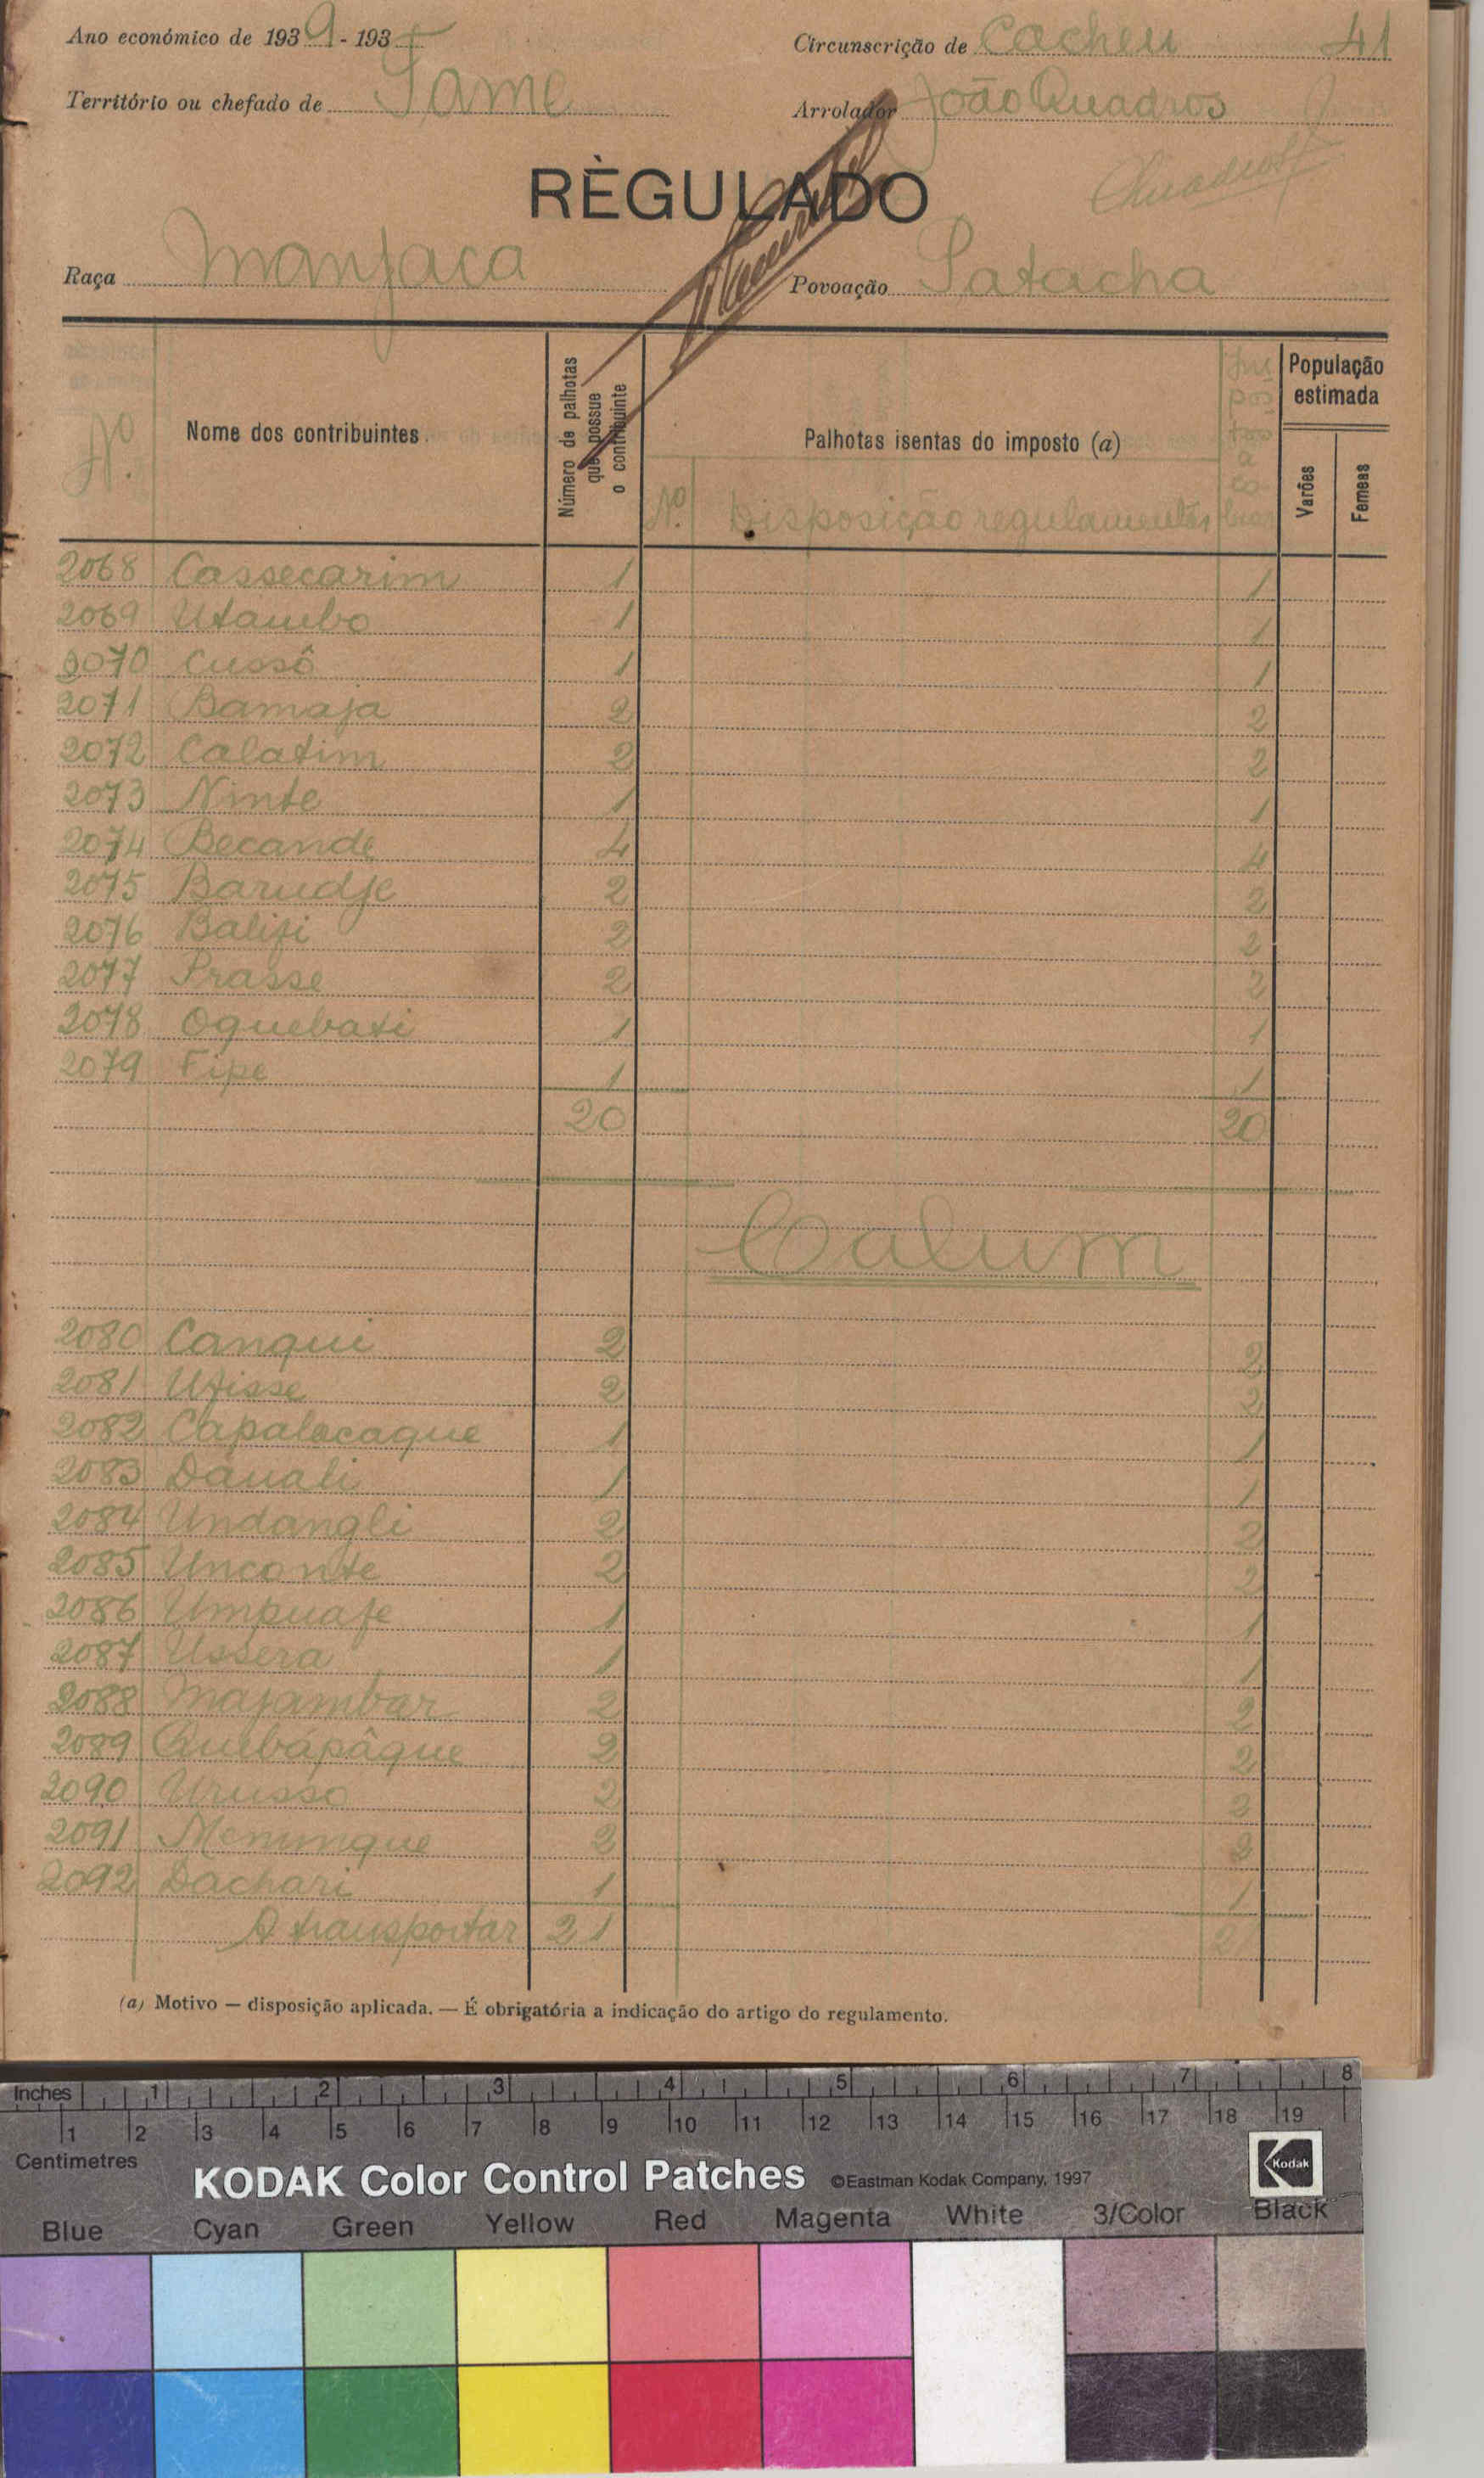 Ano económico de 1939-193
Circunscrição de Cacheu 41
Território ou chefado de Tame
Arrolador João Quadros
RÈGULADO
Raça Manjaca
Povoação Patacha
Nº
Nome dos contribuintes
Número de palhotas que possue o contribuinte
Palhotas isentas do imposto (a)
População estimada
Nº. Disposição regulamentar
Varões
Femeas
2068 Cassecarim 1 1
2069 Utambo 1 1
2070 Cussô 1 1
2071 Bamaja 2 2
2072 Calatim 2 2
2073 Ninte 1 1
2074 Becande 4 4
2075 Barudje 2 2
2076 Balifi 2 2
2077 Prasse 2 2
2078 Oquebati 1 1
2079 Fipe 1 1
20 20
Calum
2080 Canqui 2 2
2081 Utisse 2 2
2082 Capalacaque 1 1
2083 Dauali 1 1
2084 Undangli 2 2
2085 Unconte 2 2
2086 Umpuafe 1 1
2087 Ussera 1 1
2088 Majambar 2 2
2089 Quebápâque 2 2
2090 Urusso 2 2
2091 Meninque 2 2
2092 Dachari 1 1
A transportar 21 21
(a) Motivo — disposição aplicada. — É obrigatória a indicação do artigo do regulamento.
Inches 1 2 3 4 5 6 7 8
1 2 3 4 5 6 7 8 9 10 11 12 13 14 15 16 17 18 19
Centimetres
KODAK Color Control Patches ©Eastman Kodak Company, 1997 Kodak
Blue Cyan Green Yellow Red Magenta White 3/Color Black